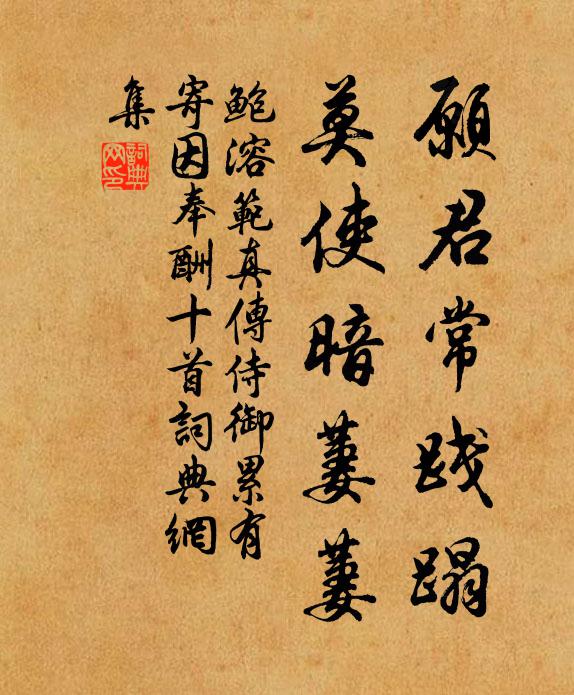 願君常踐蹋
莫使暗萋萋
鮑溶範真傳侍御累有
寄因奉酬十首詞典網
集
詞典
网印